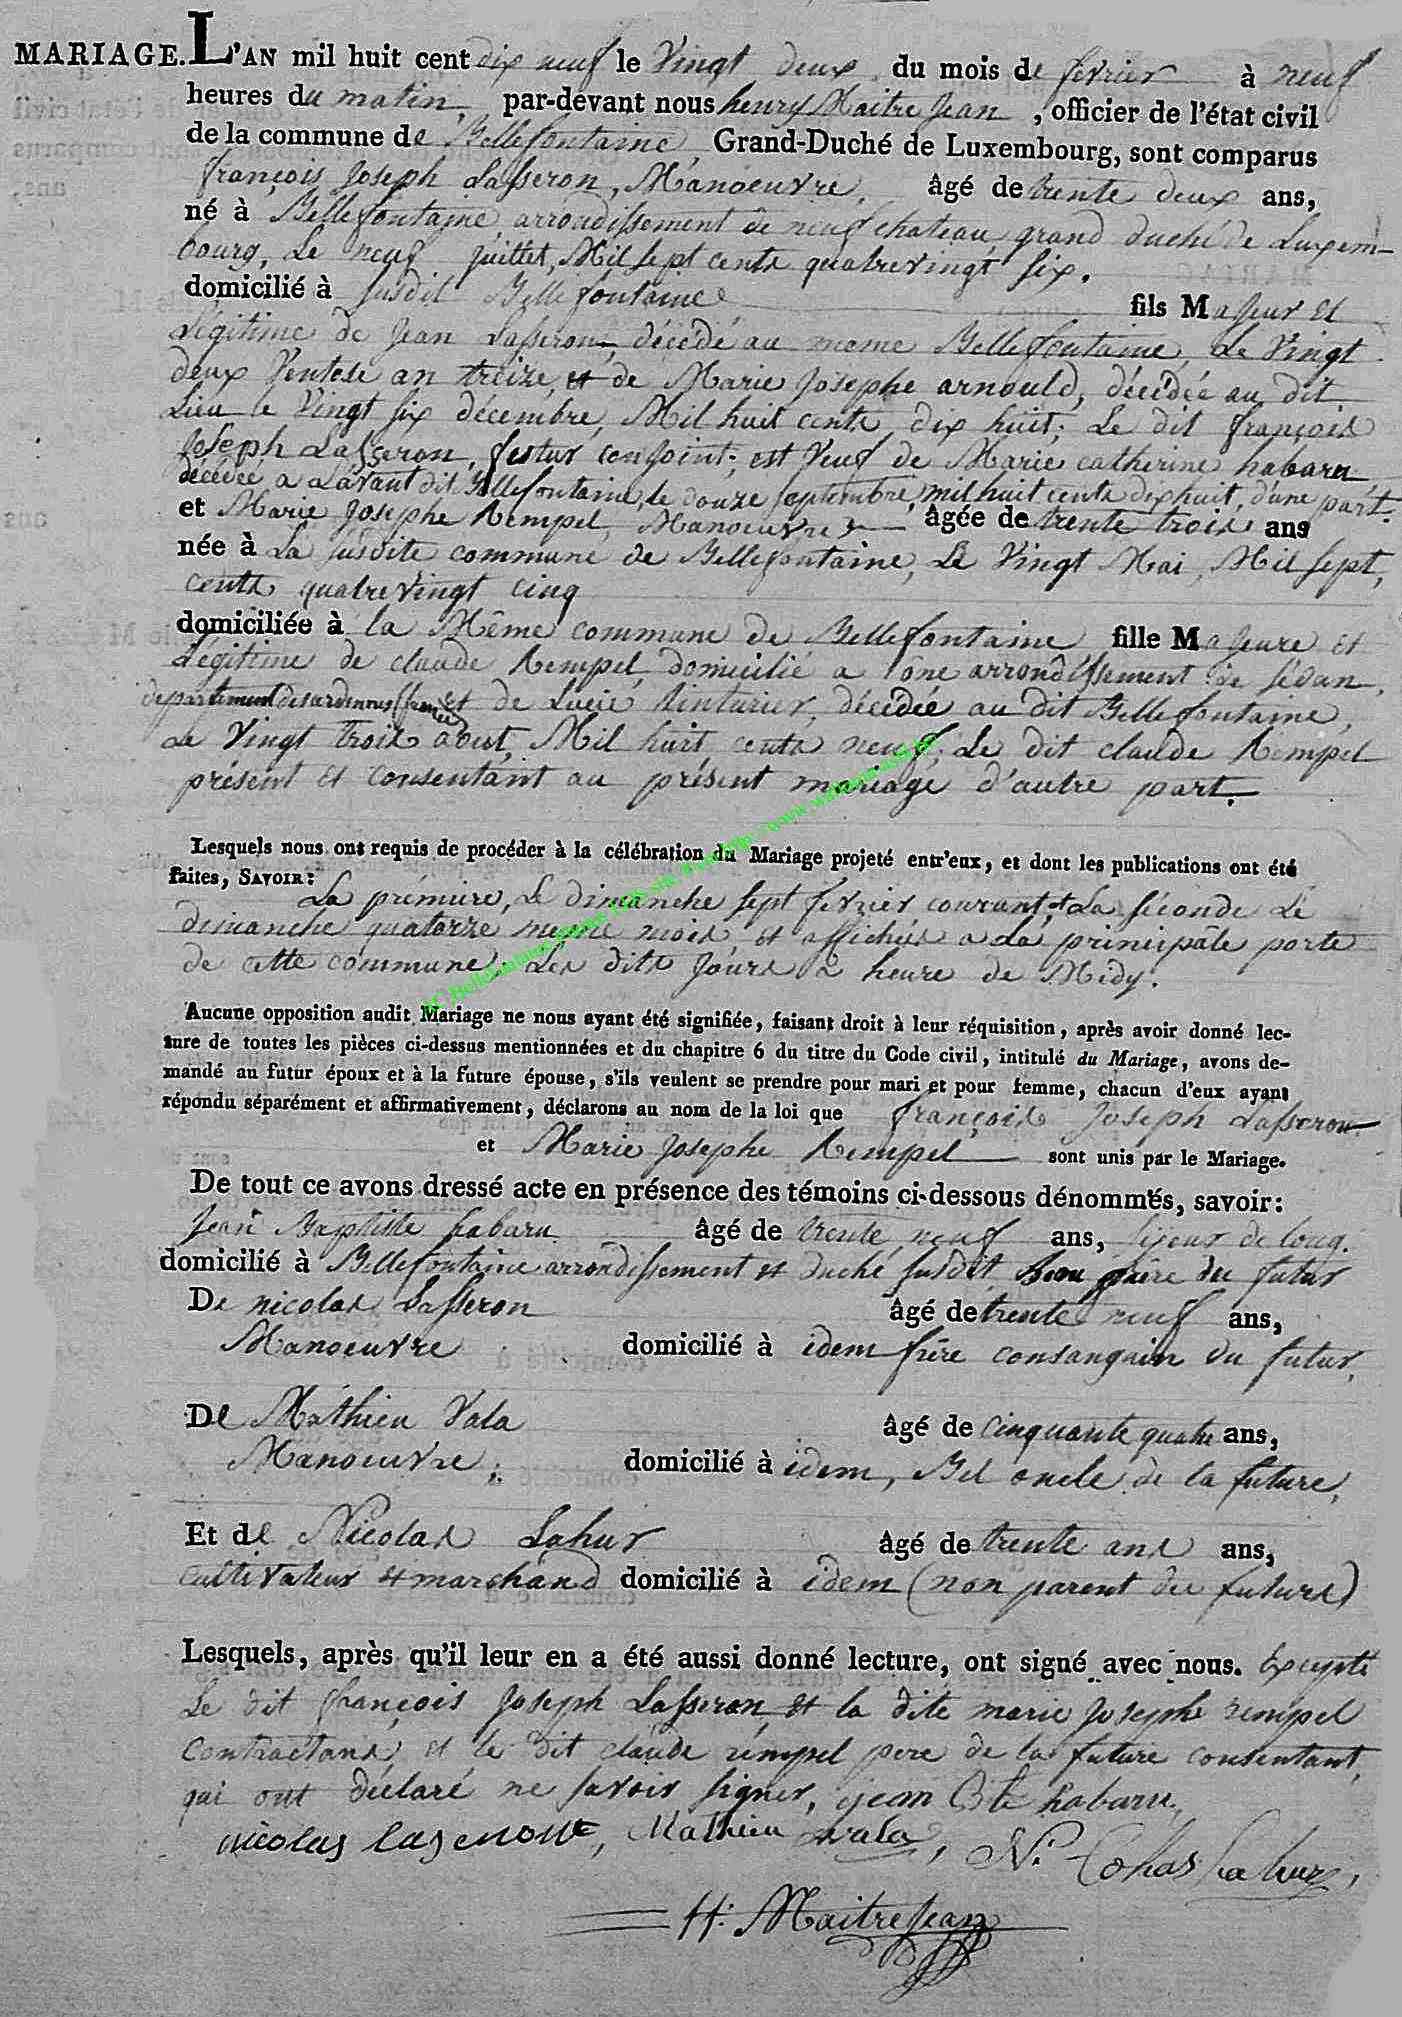 MARIAGE. L'AN mil huit cent dix neuf le Vingt deux du mois de fevrier à neuf
heures du matin, par-devant nous henry Maitre Jean, officier de l'état civil
de la commune de Bellefontaine, Grand-Duché de Luxembourg, sont comparus
françois Joseph Lasseron, Manoeuvre, âgé de trente deux ans,
né à Bellefontaine, arrondissement de neufchateau, grand duché de Luxem-
bourg, Le neuf Juillet, Mil sept cents quatrevingt six.
domicilié à susdit Bellefontaine fils Majeur et
Légitime de Jean Lasseron, décédé au meme Bellefontaine, Le Vingt
deux Ventose an treize, et de Marie Josephe arnould, décédée au dit
Lieu le Vingt six décembre, Mil huit cents dix huit; Le dit françois
Joseph Lasseron, futur conjoint; est Veuf de Marie catherine habaru
décédée a L'avant dit Bellefontaine, le douze septembre, mil huit cents dix huit, d'une part.
et Marie Josephe Rempel, Manoeuvre âgée de trente trois ans
née à La susdite commune de Bellefontaine, Le Vingt Mai, Mil sept,
cents quatrevingt cinq
domiciliée à la Même commune de Bellefontaine, fille Majeure et
Légitime de claude Rempel, domicilié a arrondissement de sédan,
departement des ardennes (france) et de Lucie tinturier, décédée au dit Bellefontaine,
Le Vingt trois août, Mil huit cents neuf, Le dit claude Rempel
présent et consentant au présent mariage d'autre part.
Lesquels nous ont requis de procéder à la célébration du Mariage projeté entr'eux, et dont les publications ont été
faites, SAVOIR:
La prémiere, Le dimanche sept fevrier, courant, et La séconde Le
dimanche quatorze meme mois, et affichés a La principâle porte
de cette commune, Les dits Jours a heure de Midy.
Aucune opposition audit Mariage ne nous ayant été signifiée, faisant droit à leur réquisition, après avoir donné lec-
ture de toutes les pièces ci-dessus mentionnées et du chapitre 6 du titre du Code civil, intitulé du Mariage, avons de-
mandé au futur époux et à la future épouse, s'ils veulent se prendre pour mari et pour femme, chacun d'eux ayant
répondu séparément et affirmativement, déclarons au nom de la loi que françois Joseph Lasseron
et Marie Josephe Rempel sont unis par le Mariage.
De tout ce avons dressé acte en présence des témoins ci-dessous dénommés, savoir:
Jean Baptiste habaru âgé de trente neuf ans, de long.
domicilié à Bellefontaine arrondissement et duché susdit Beau frère du futur
De nicolas Lasseron âgé de trente neuf ans,
Manoeuvre domicilié à idem frère consanguin du futur,
De Mathieu Vala âgé de cinquante quatre ans,
Manoeuvre, domicilié à idem, Bel oncle de la future,
Et de Nicolas Lahur âgé de trente ans ans,
cultivateur et marchand domicilié à idem (non parent du futurs)
Lesquels, après qu'il leur en a été aussi donné lecture, ont signé avec nous. Excepté
Le dit françois Joseph Lasseron, et la dite marie Josephe rempel
contractans, et le dit claude rempel pere de la future consentant,
qui ont déclaré ne savoir signer, jean Bte habaru,
nicolas Mathieu vala, N. Colas Lahur,
H: MaitreJean